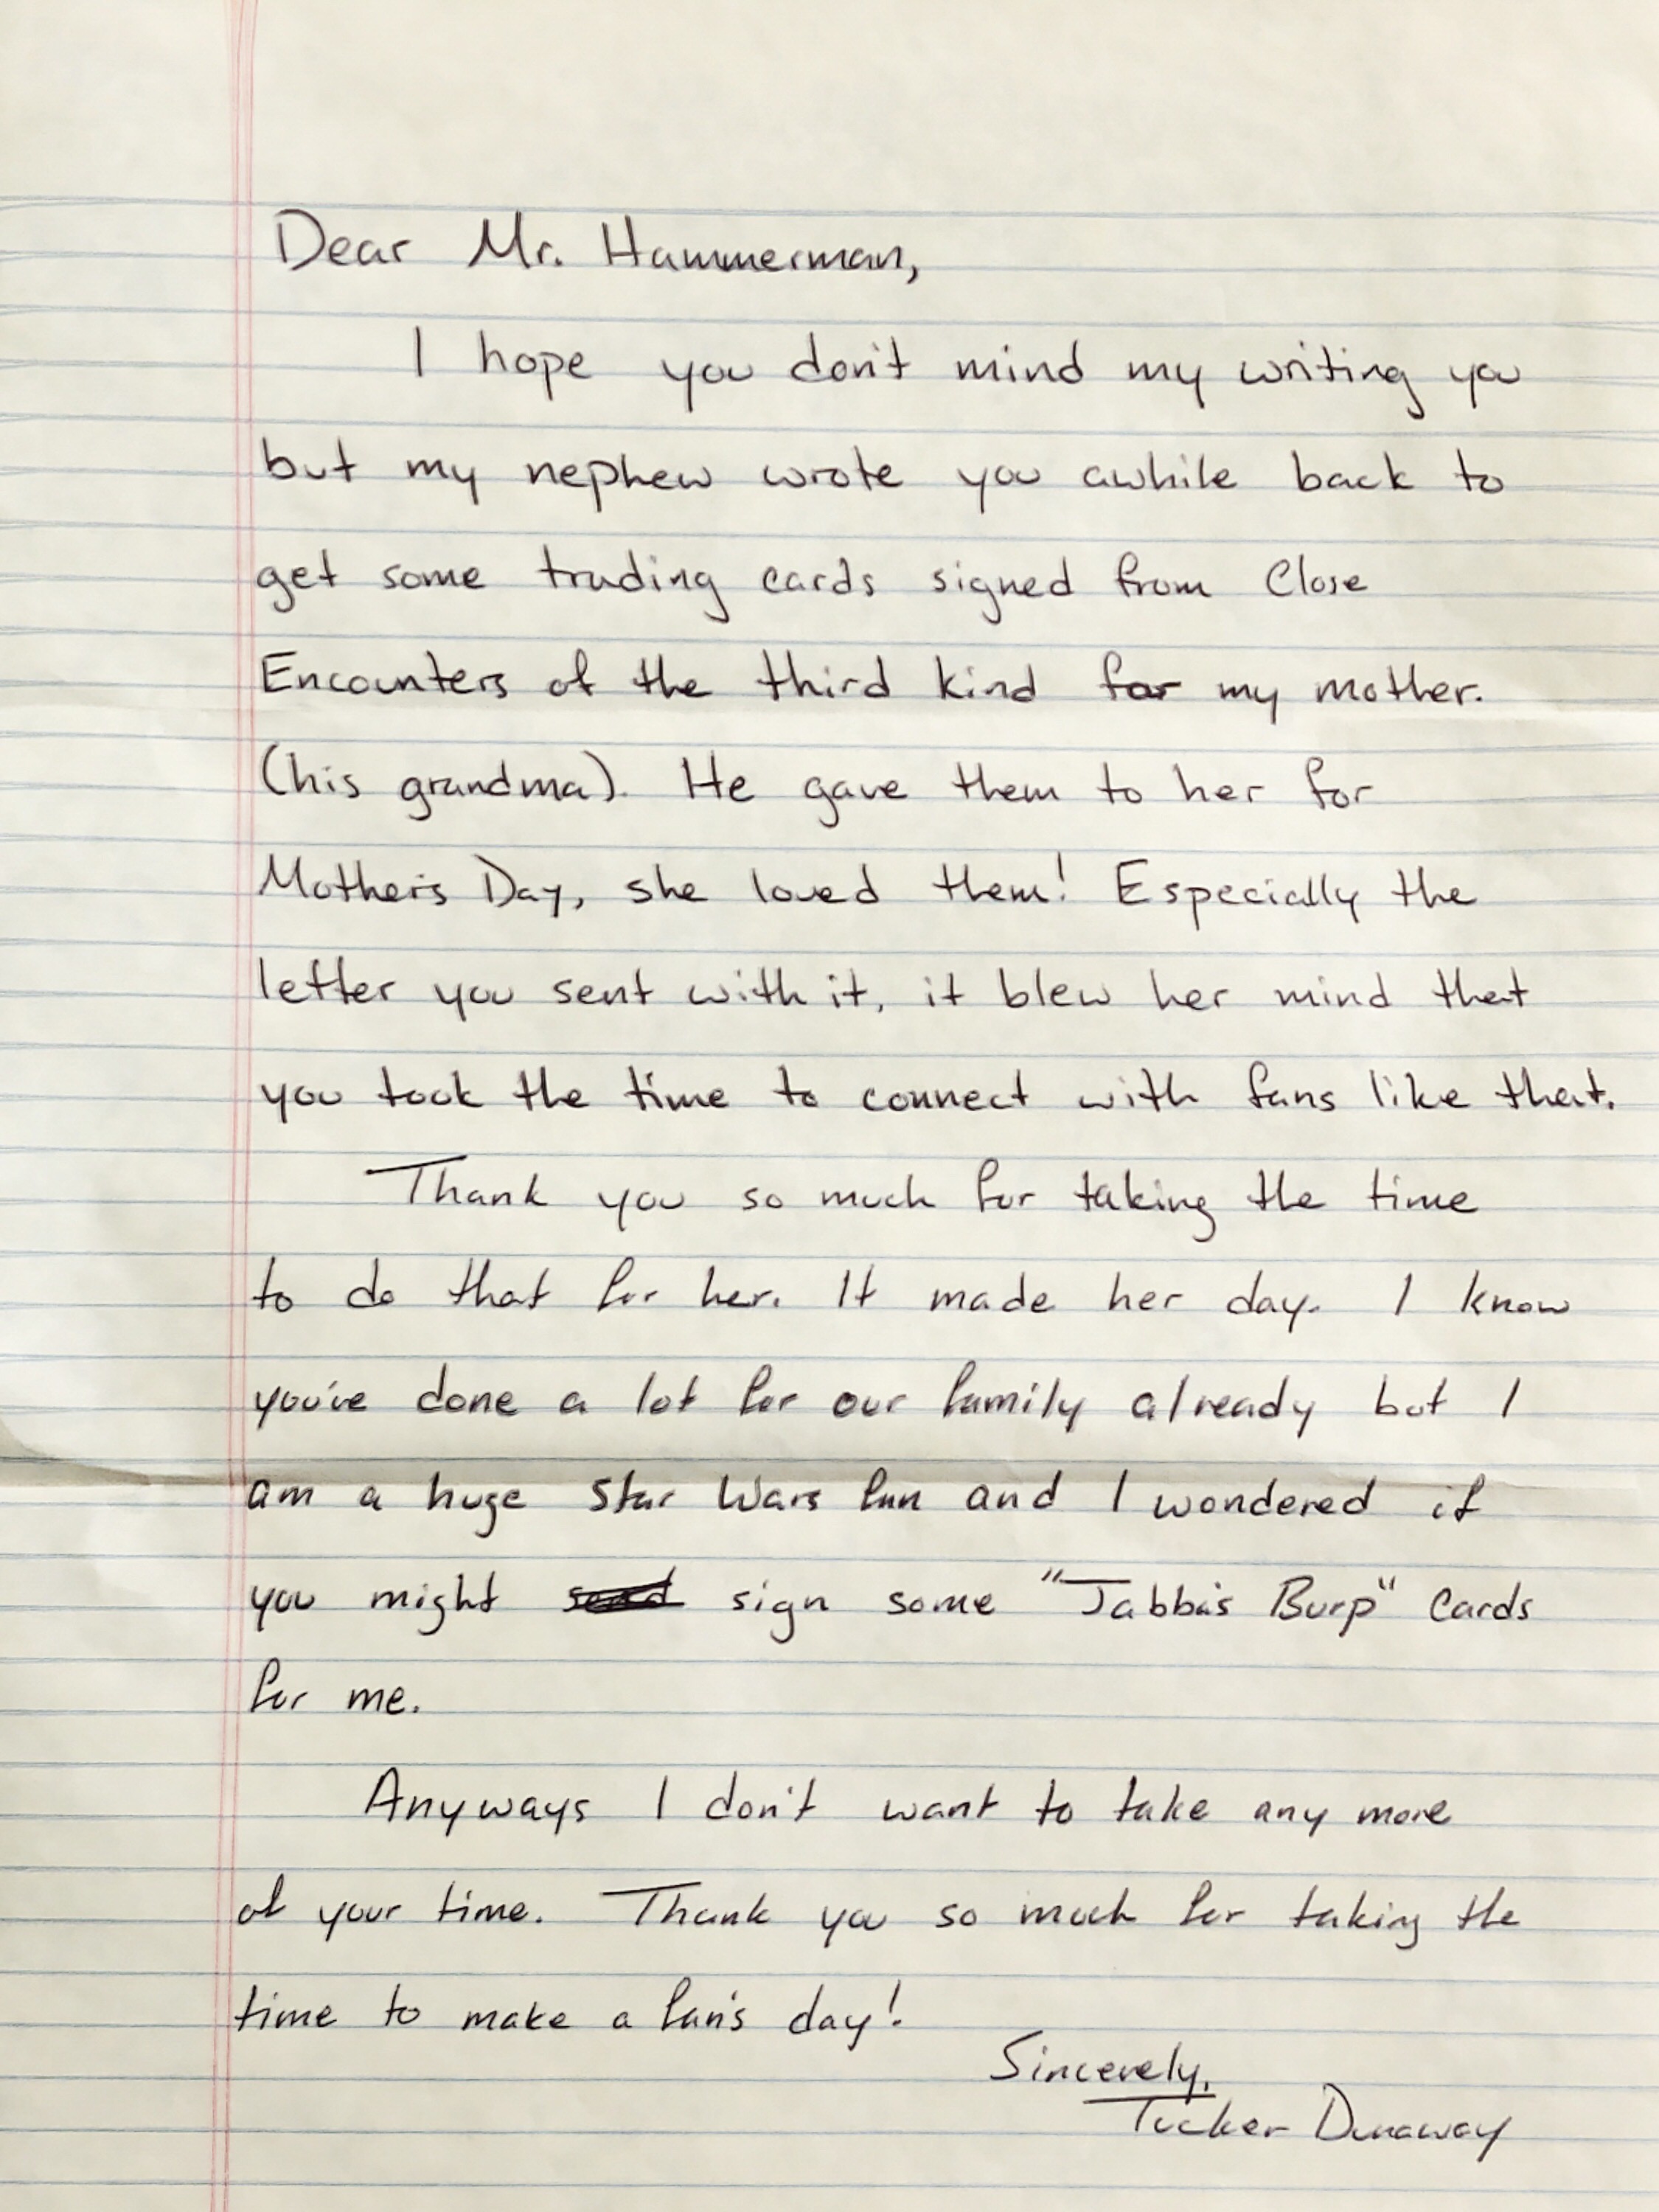 Dear Mr. Hammerman,
I hope you don't mind my writing you
but my nephew wrote you awhile back to
get some trading cards signed from Close
Encounters of the third kind for my mother.
(his grandma). He gave them to her for
Mother's Day, she loved them! Especially the
letter you sent with it, it blew her mind that
you took the time to connect with fans like that.
Thank you so much for taking the time
to do that for her. It made her day. I know
you've done a lot for our family already but I
am a huge Star Wars fan and I wondered if
you might send sign some "Jabba's Burp" cards
for me.
Anyways I don't want to take any more
of your time. Thank you so much for taking the
time to make a fan's day!
Sincerely,
Tucker Dunaway